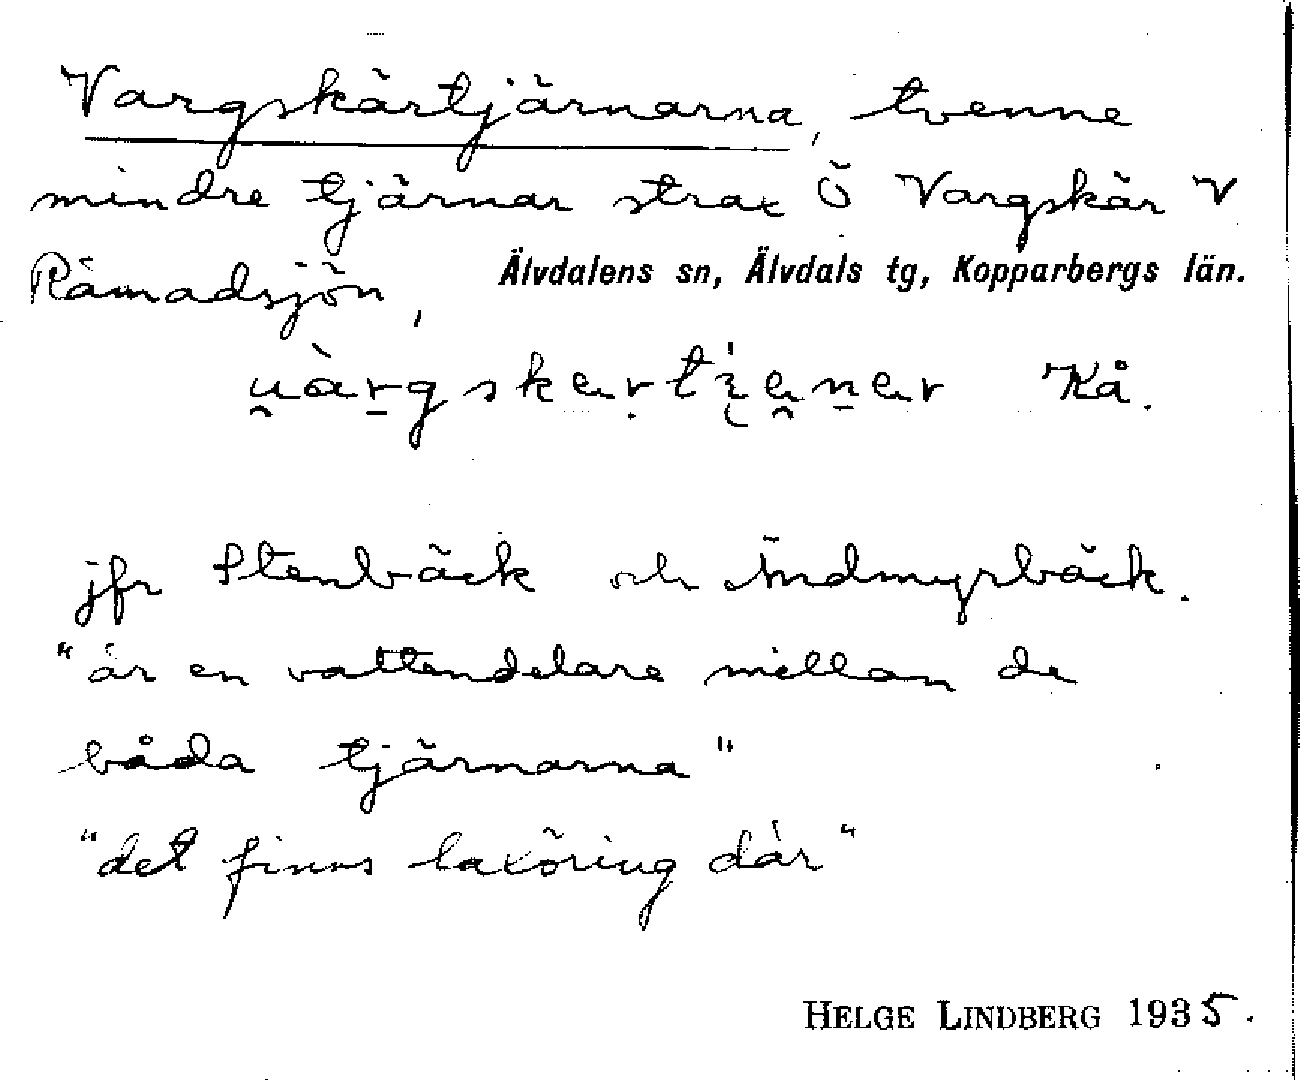 Vargskärtjärnarna, tvenne
mindre tjärnar strax Ö Vargskär V
Råmadsjön,
Älvdalens sn, Älvdals tg, Kopparbergs län.
Kå.
jfr Stenbäck och Ändmyrbäck.
"är en vattendelare mellan de
båda tjärnarna"
"det finns laxöring där"
HELGE LINDBERG 1935.